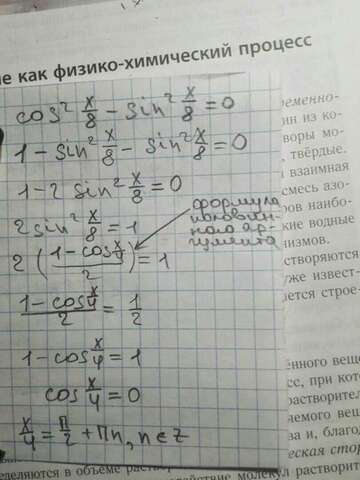 не как физико-химический процесс
cos² x/8 - sin² x/8 = 0
1 - sin² x/8 - sin² x/8 = 0
1 - 2 sin² x/8 = 0
2 sin² x/8 = 1
формула
половин-
ного ар-
гумента
2 ( (1 - cos x/4)/2 ) = 1
(1 - cos x/4)/2 = 1/2
1 - cos x/4 = 1
cos x/4 = 0
x/4 = П/2 + Пn, n ∈ Z
ременно-
ин из ко-
воры мо-
твёрдые.
взаимная
смесь азо-
ров наибо-
кие водные
низмов.
астворяются
уже извест-
ется строе-
ённого веще
сс, при кот
растворител
емого веще
ва и, благод
ческая стор
еделяются в объёме раство
действие молекул растворит